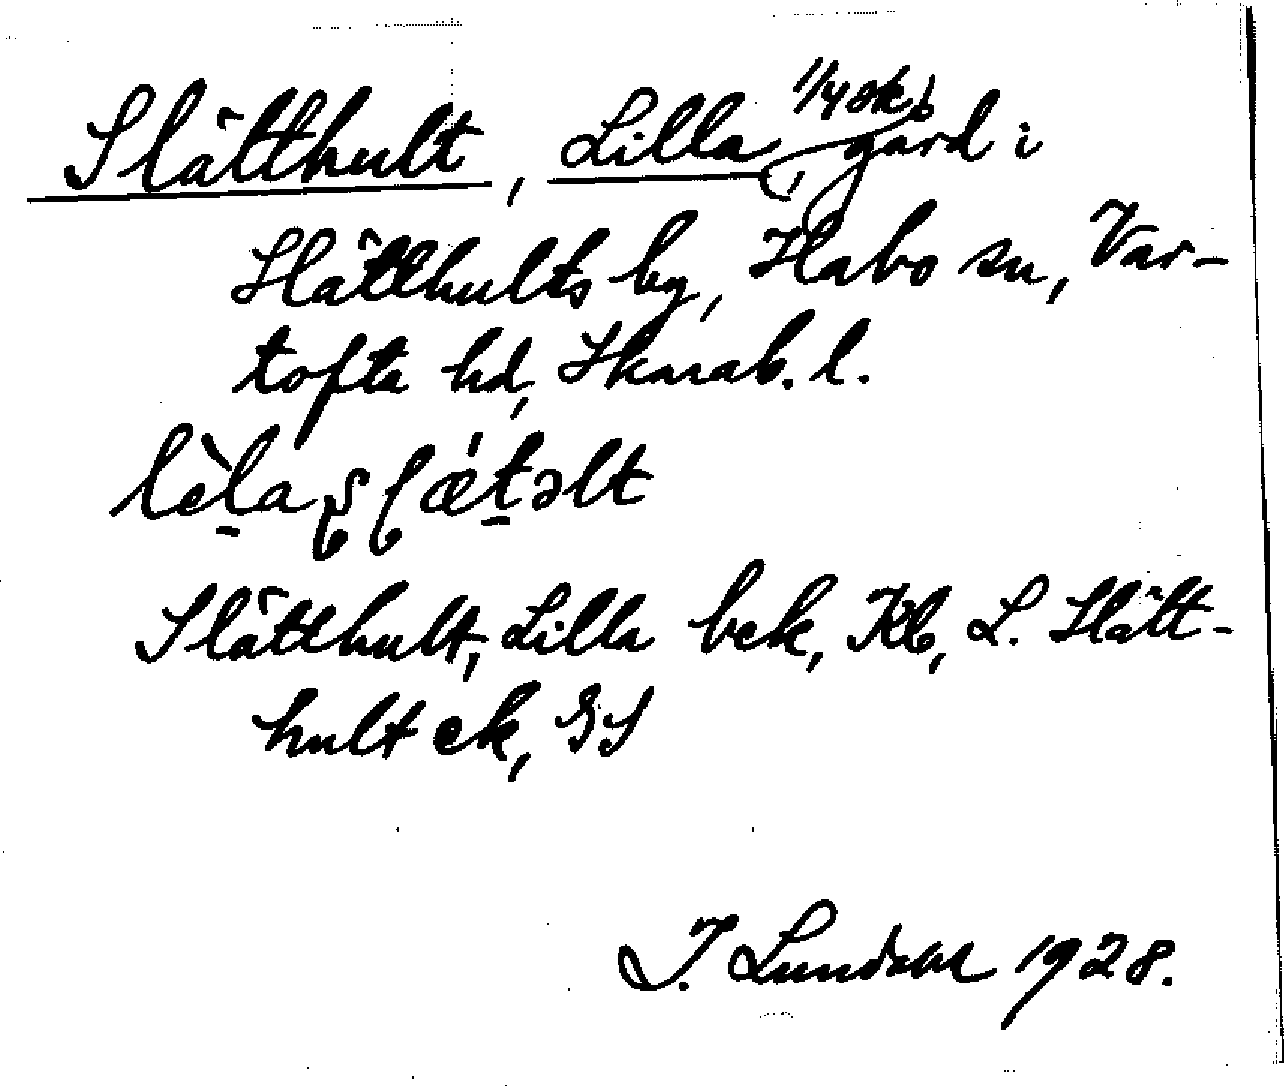 Slätthult, Lilla, 1/4 sk b gård i
Slätthults by, Habo sn, Var-
tofta hd, Skarab. l.
Slätthult, Lilla bek, Kb, L. Slätt-
hult ek, GS
I. Lundahl 1928.